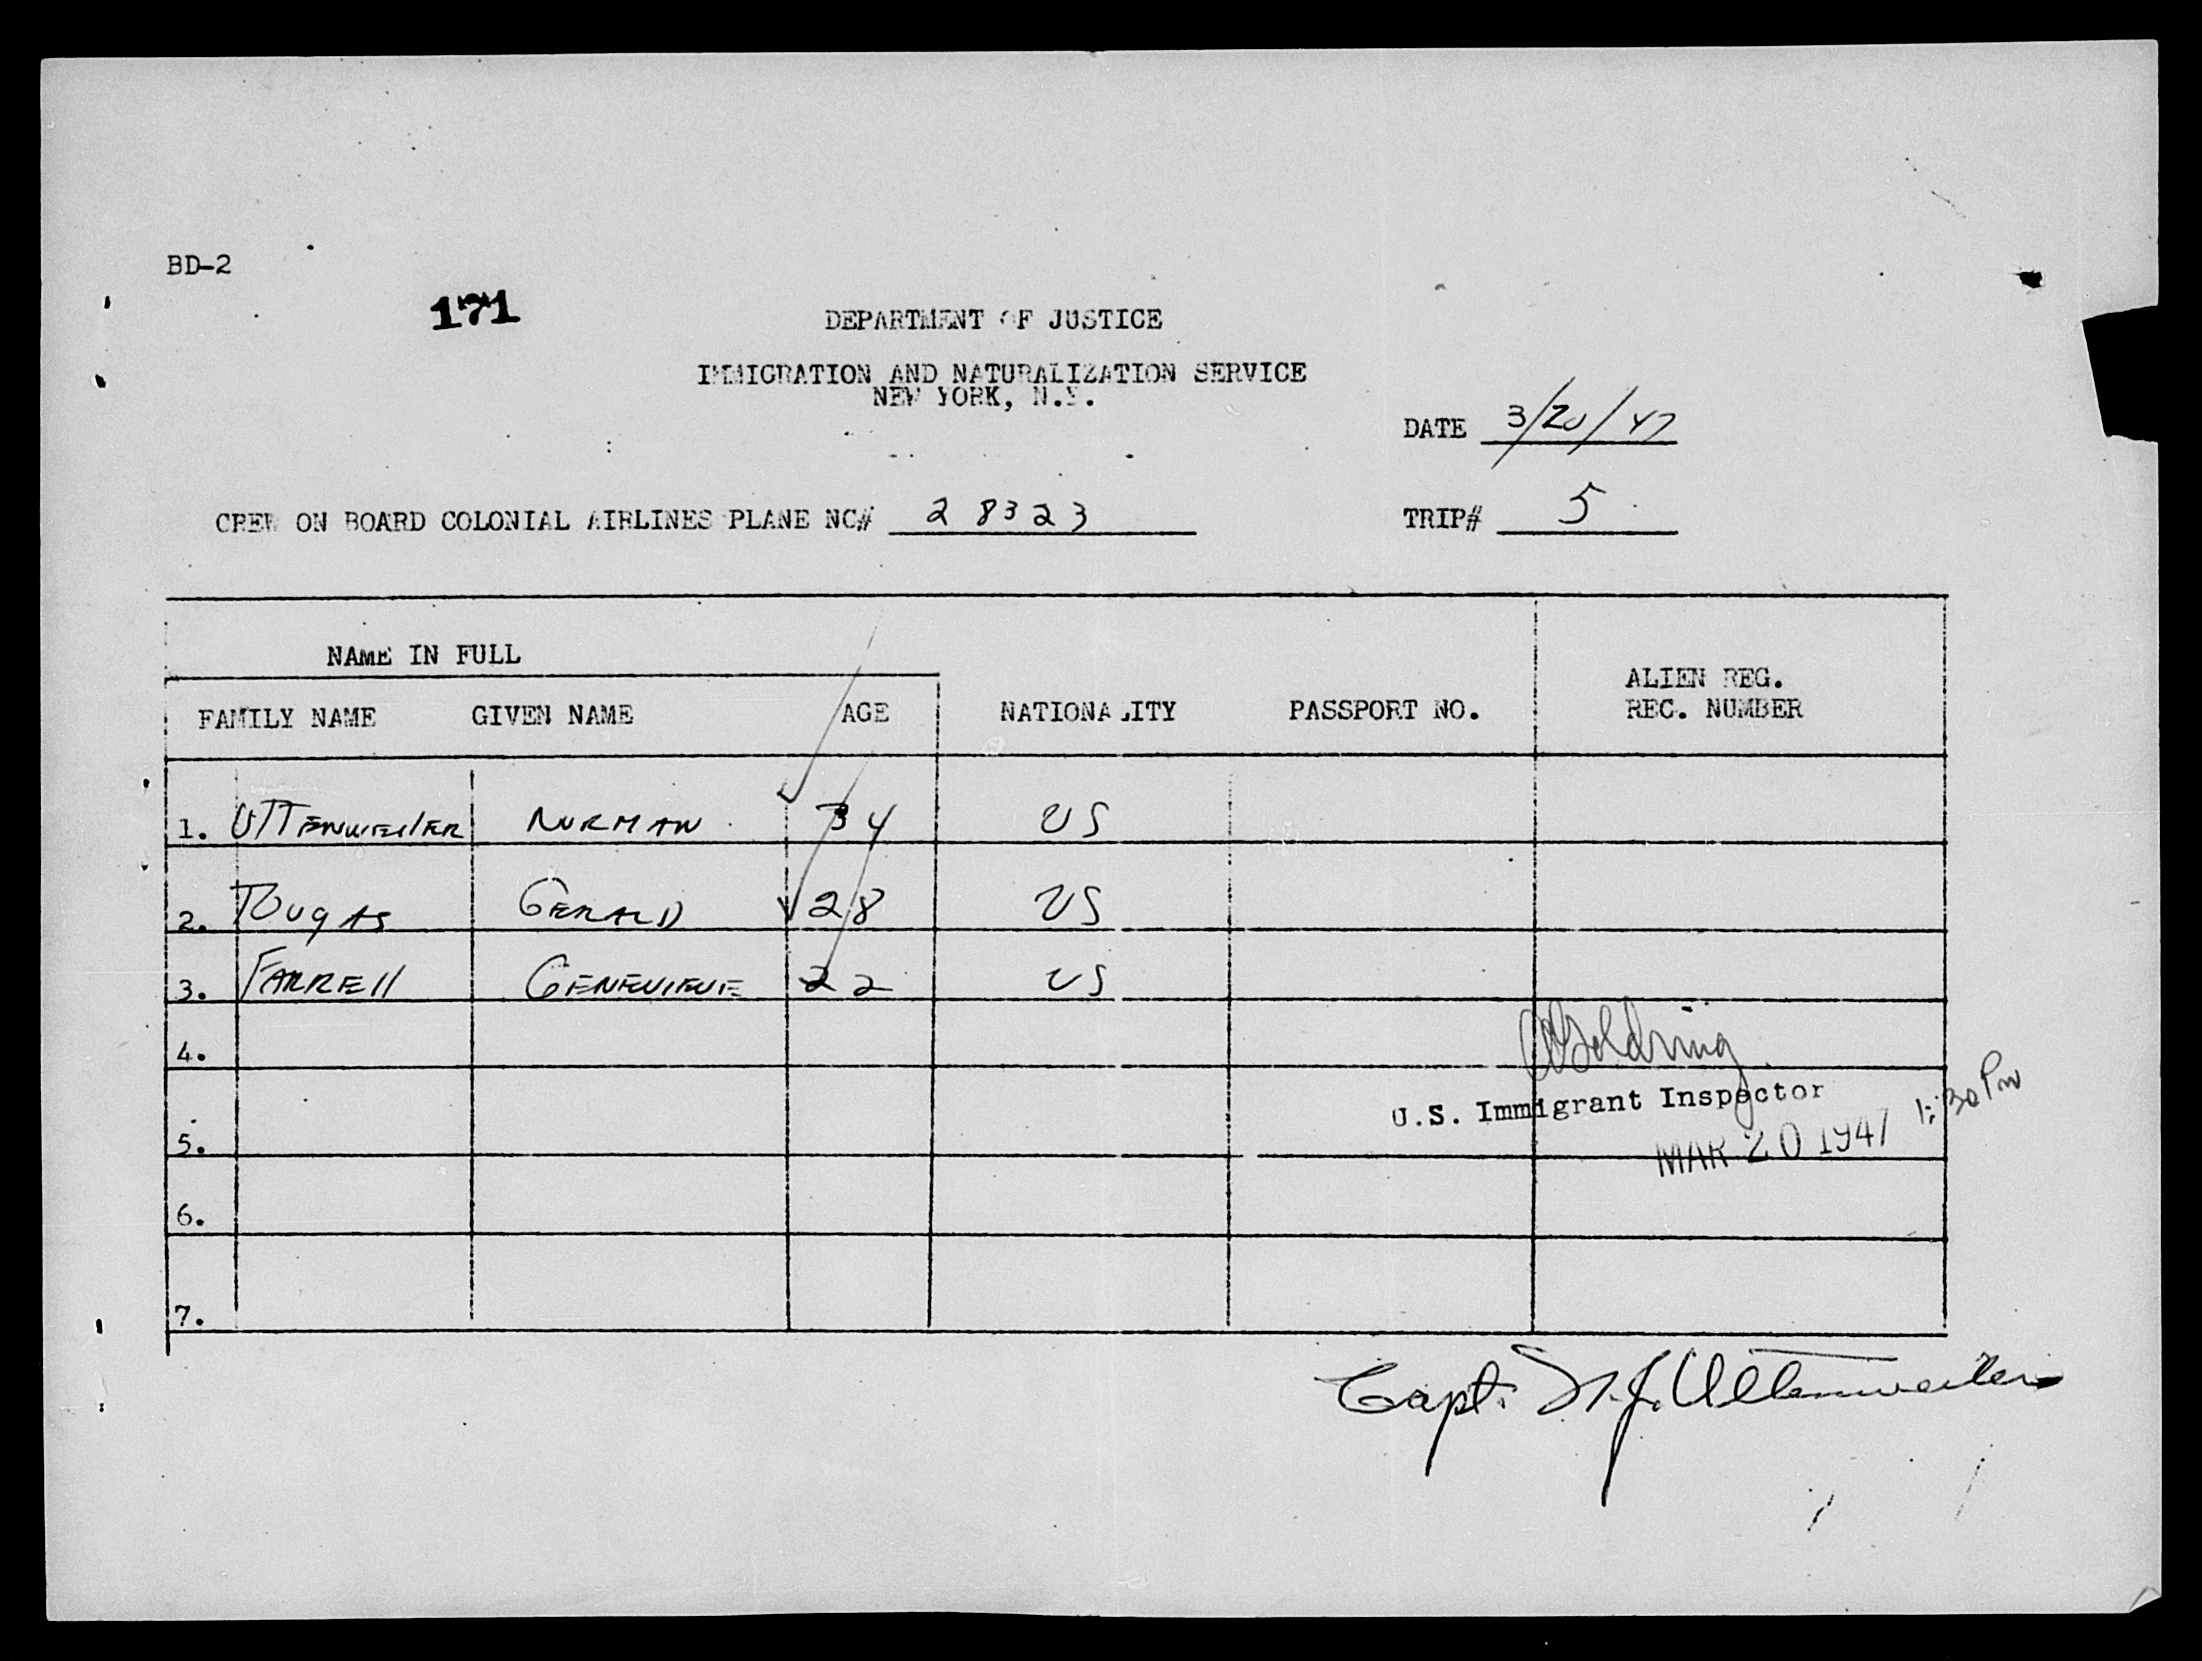 BD-2
171
DEPARTMENT OF JUSTICE
IMMIGRATION AND NATURALIZATION SERVICE
NEW YORK, N.Y.
DATE 3/20/47
CREW ON BOARD COLONIAL AIRLINES PLANE NC# 28323 TRIP# 5
NAME IN FULL
FAMILY NAME GIVEN NAME AGE NATIONALITY PASSPORT NO. ALIEN REG.
REC. NUMBER
1. UTTENWEILER NORMAN 34 US
2. DUGAS GERALD 28 US
3. FARRELL GENEVIEVE 22 US
Goldring
4.
U.S. Immigrant Inspector
MAR 20 1947 1:30 PM
5.
6.
7.
Capt. N.J. Uttenweiler